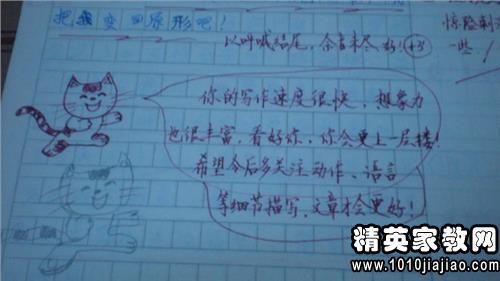 把我变回原形吧！
以呐喊结尾，余言未尽好！+3
惊险刺
一些！
你的写作速度很快，想象力
也很丰富，看好你，你会更上一层楼！
希望今后多关注动作、语言
等细节描写，文章才会更好！
精英家教网
www.1010jiajiao.com